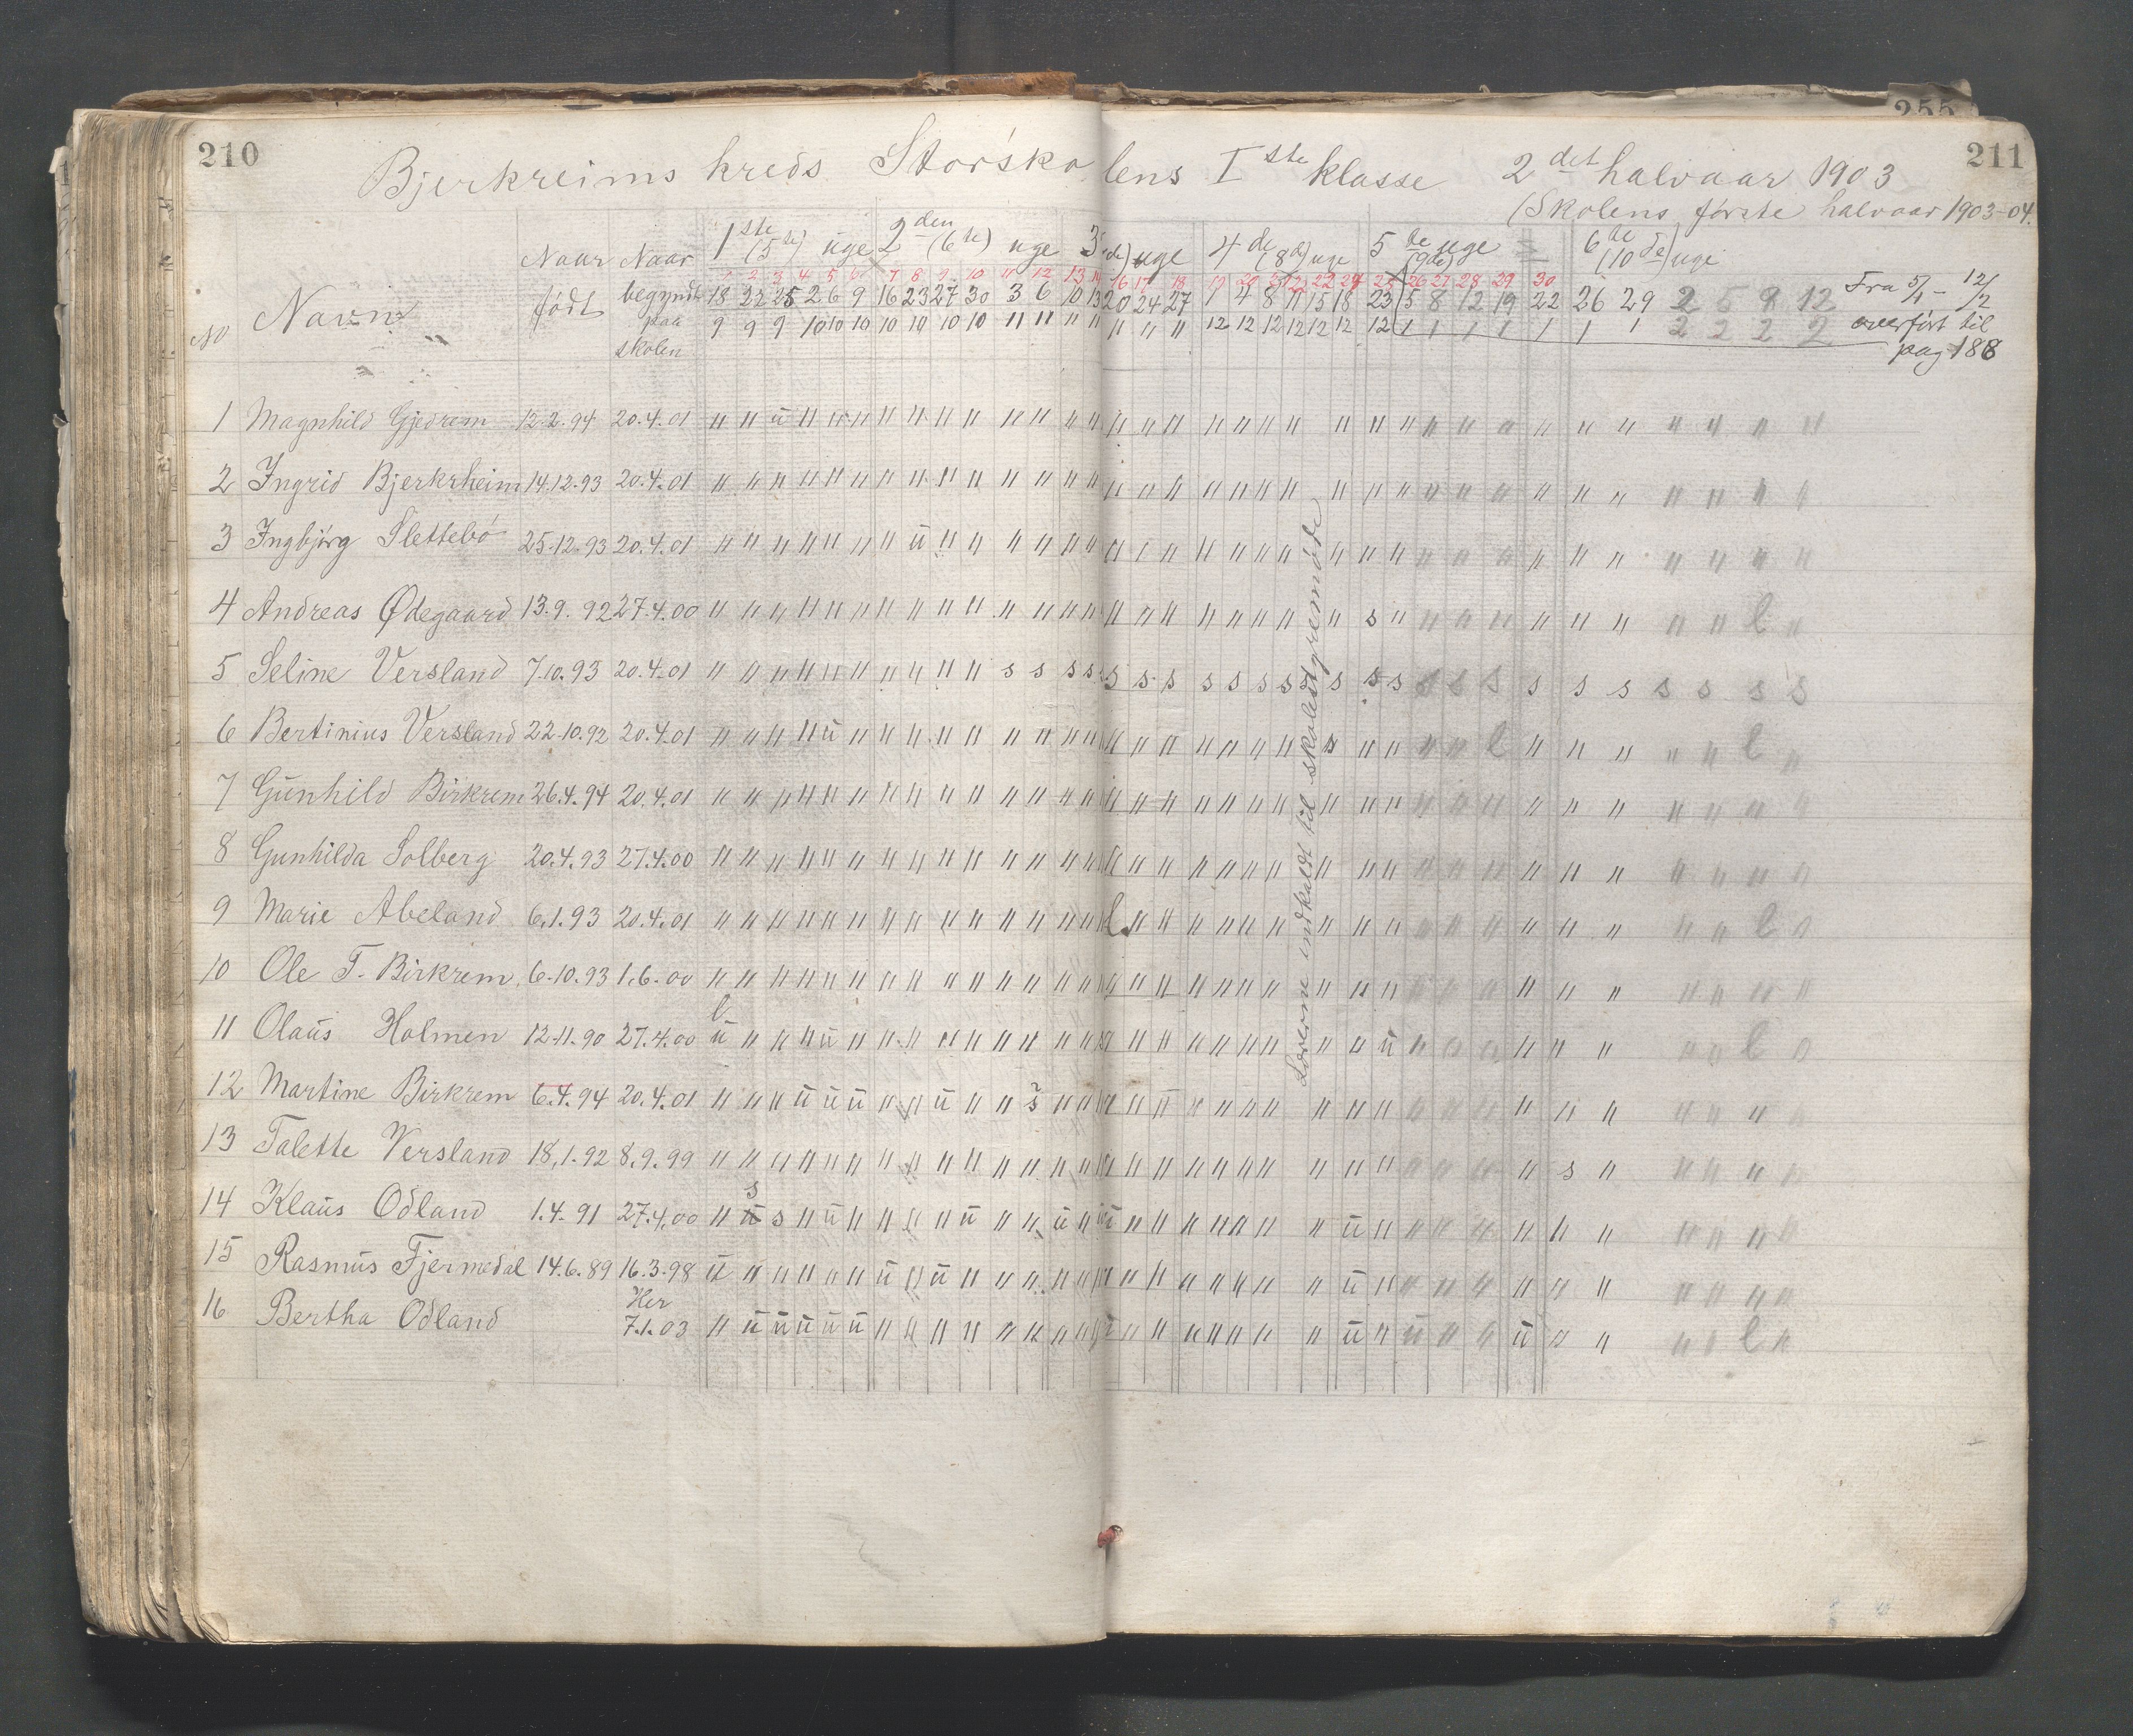 210
211
255
Bjerkreims kreds Storskolens I ste klasse 2 det halvaar 1903
(Skolens første halvaar 1903-04.
No Navn Naar født Naar begyndt paa skolen
1 ste (5 te) uge 2 den (6 te) uge 3 de) uge 4 de (8 de) uge 5 te uge (9 de) 6 te (10 de) uge
1 2 3 4 5 6 7 8 9 10 11 12 13 14 16 17 18 19 20 25 26 27 28 29 30
18 22 25 2 6 9 16 23 27 30 3 6 10 13 20 24 27 1 4 8 11 15 18 23 5 8 12 19 22 26 29 2 5 9 12
9 9 9 10 10 10 10 10 10 10 11 11 11 11 11 11 11 12 12 12 12 12 12 12 1 1 1 1 1 1 1 2 2 2 2
Fra 5/1 - 12/2
overført til
pag 188
1 Magnhild Gjedrem 12.2.94 20.4.01
2 Ingrid Bjerkrheim 14.12.93 20.4.01
3 Ingbjørg Slettebø 25.12.93 20.4.01
4 Andreas Ødegaard 13.9.92 27.4.00 s l
5 Seline Versland 7.10.93 20.4.01 s s s s s s s s s s s s s s s s s s s s s s s s s
6 Bertinius Versland 22.10.92 20.4.01 l l
7 Gunhild Birkrem 26.4.94 20.4.01
8 Gunhilda Solberg 20.4.93 27.4.00
9 Marie Abeland 6.1.93 20.4.01 l l
10 Ole T. Birkrem 6.10.93 1.6.00
11 Olaus Holmen 12.11.90 27.4.00 l l
12 Martine Birkrem 6.4.94 20.4.01 s
13 Talette Versland 18.1.92 8.9.99 s
14 Klaus Odland 1.4.91 27.4.00 s s
15 Rasmus Fjermedal 14.6.89 16.3.98
16 Bertha Odland Her 7.1.03 l
Lærerne indkaldt til skolestyremøde